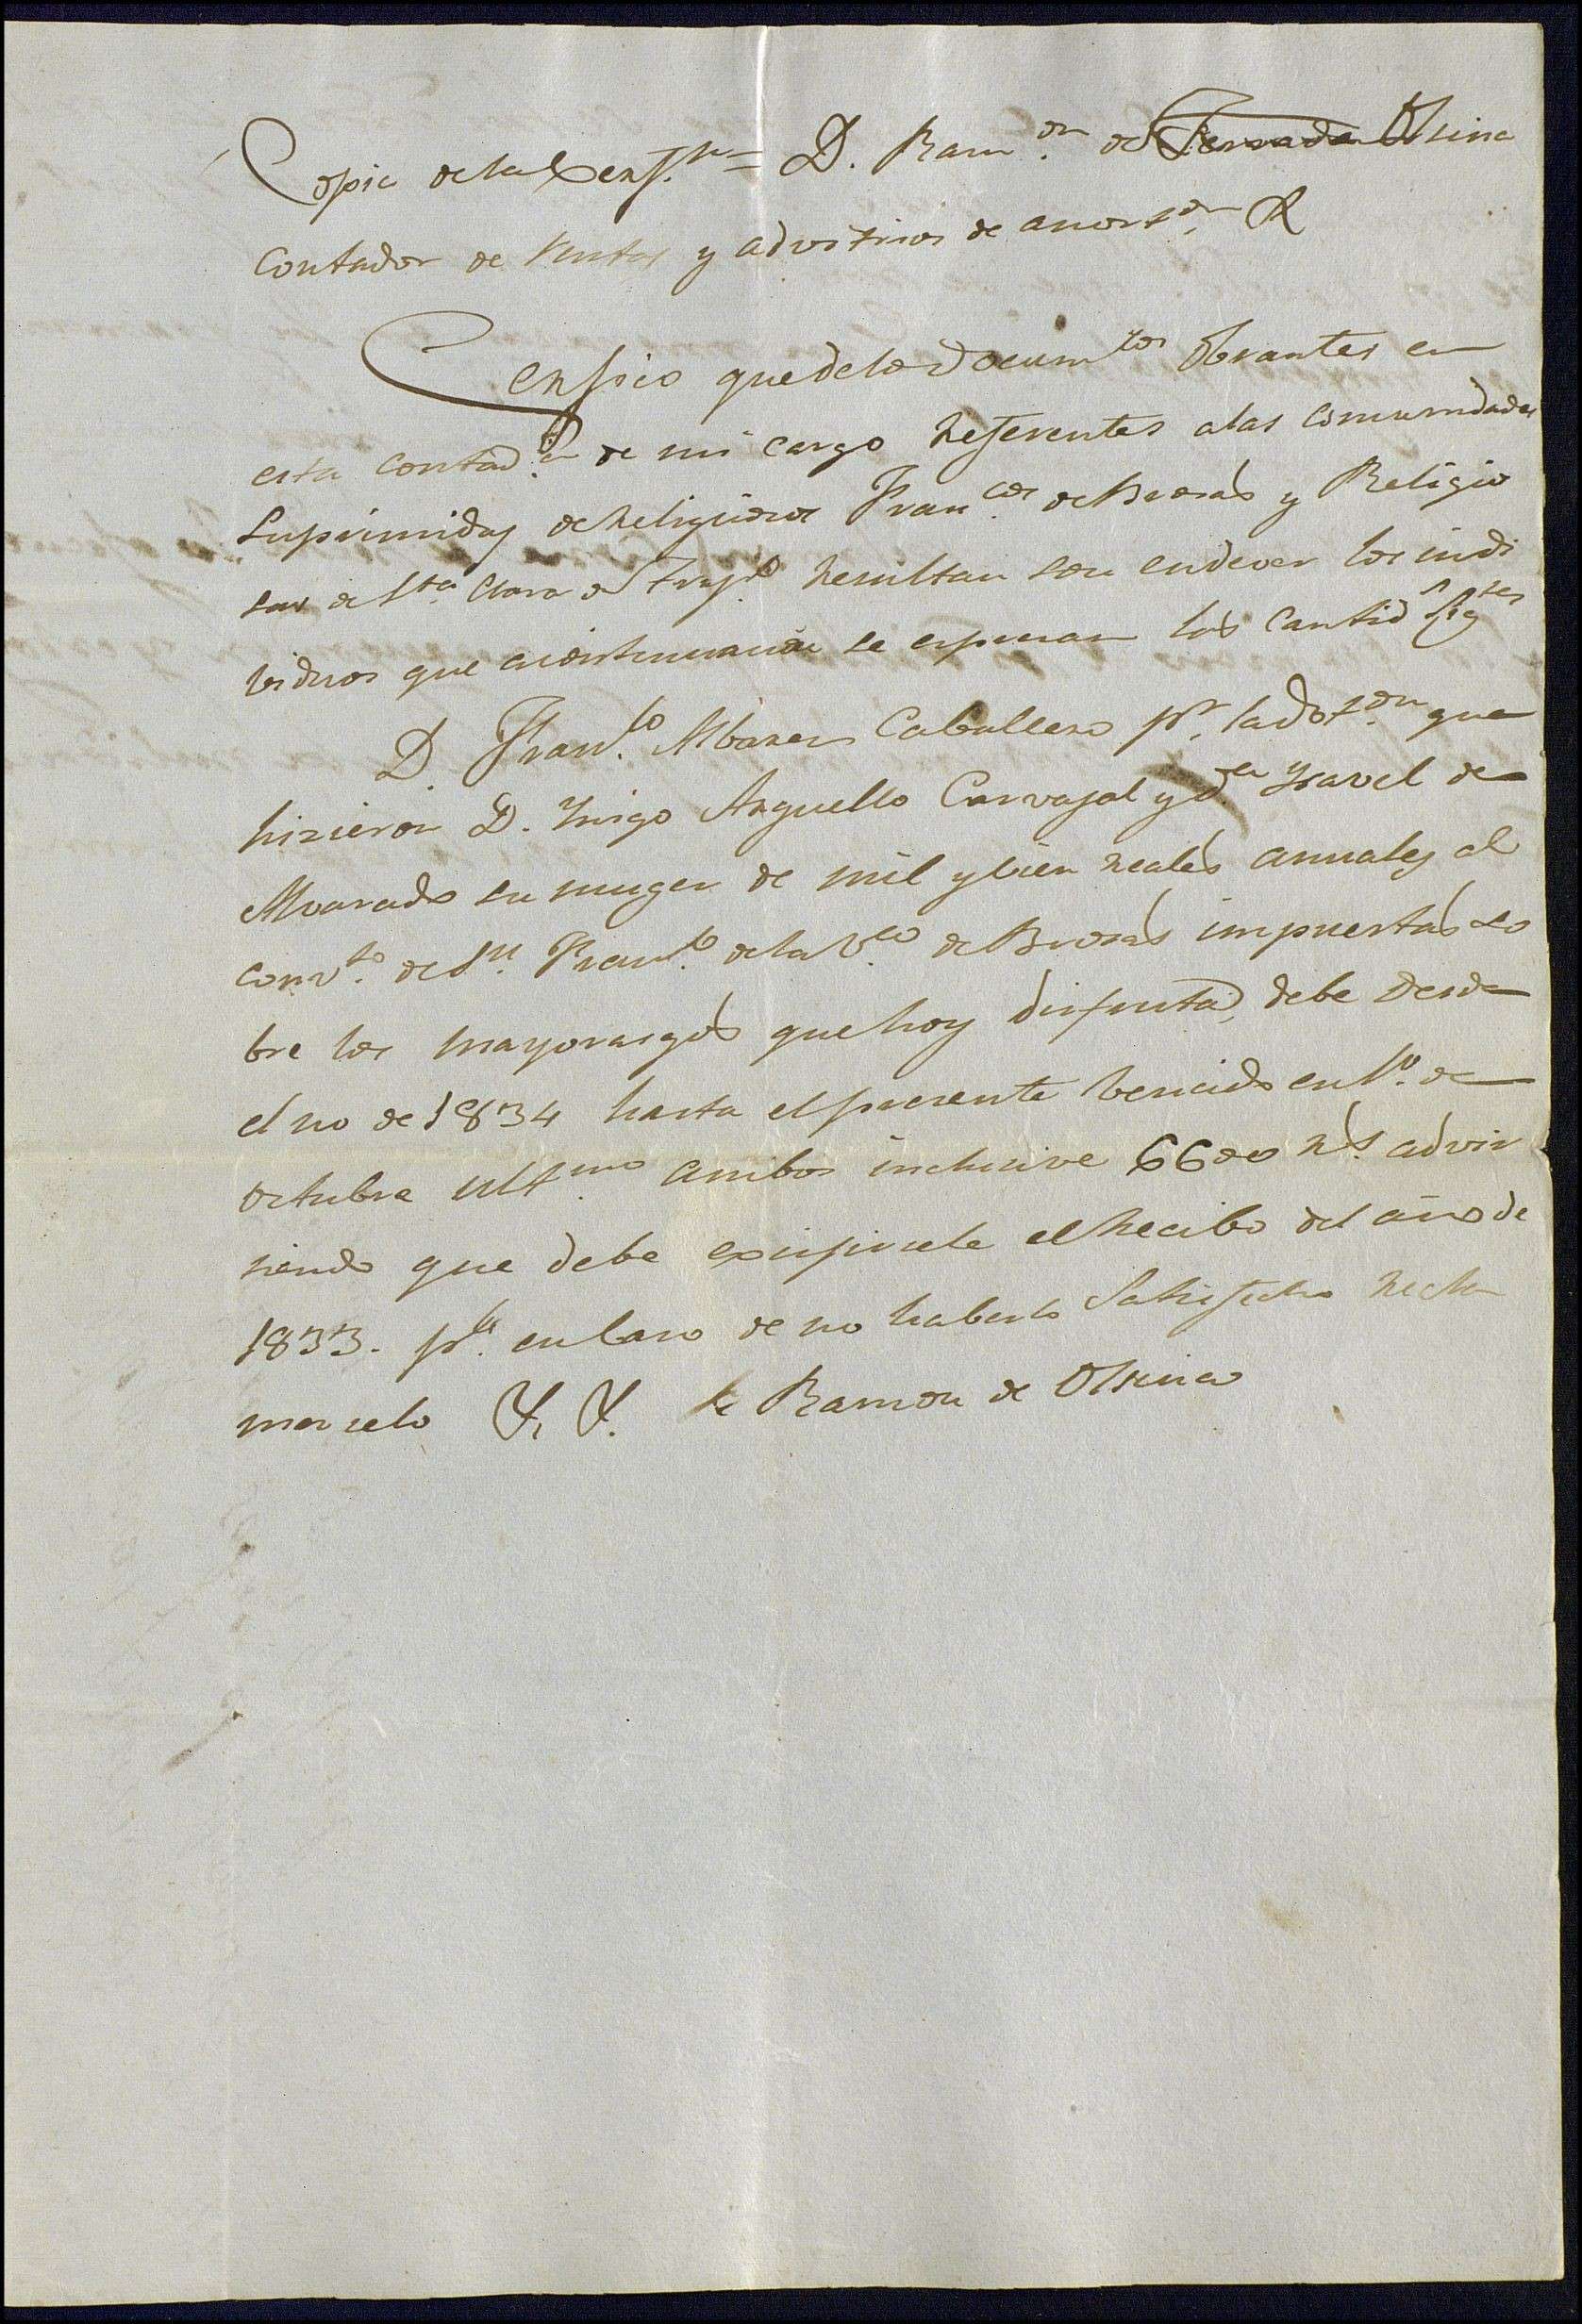 Copia dela Cert.on = D. Ram.on de Olsina
Contador de Rentas y advitrios de amort.on &
Certifico que delos Docum.tos Obrantes en
esta contad.a de mi cargo referentes alas comunidades
Suprimidas de religiosos Fran.cos de Brozas y Religio
sas de S.ta Clara de Truj.o resultan son en dever los indi
biduos que acontinuacion se espresan las Cantid.s sig.tes
D. Fran.co Albarez Caballero p.r la dot.on que
hizieron D. Inigo Arguello Carvajal y d.a Ysavel de
Alvarado su muger de mil y cien reales annuales al
conv.to de S.n Fran.co dela V.co de Brozas impuestas so
bre los mayorazgos que hoy disfruta, debe desde
el no de 1834 hasta el presente bencido en 1.o de
Octubre ult.mo ambos inclusive 6600 r.s advir
tiendo que debe exsijirsele el recibo del año de
1833. p.a en caso de no haberlo Satisfecho recla
marselo & &. Ramon de Olsina